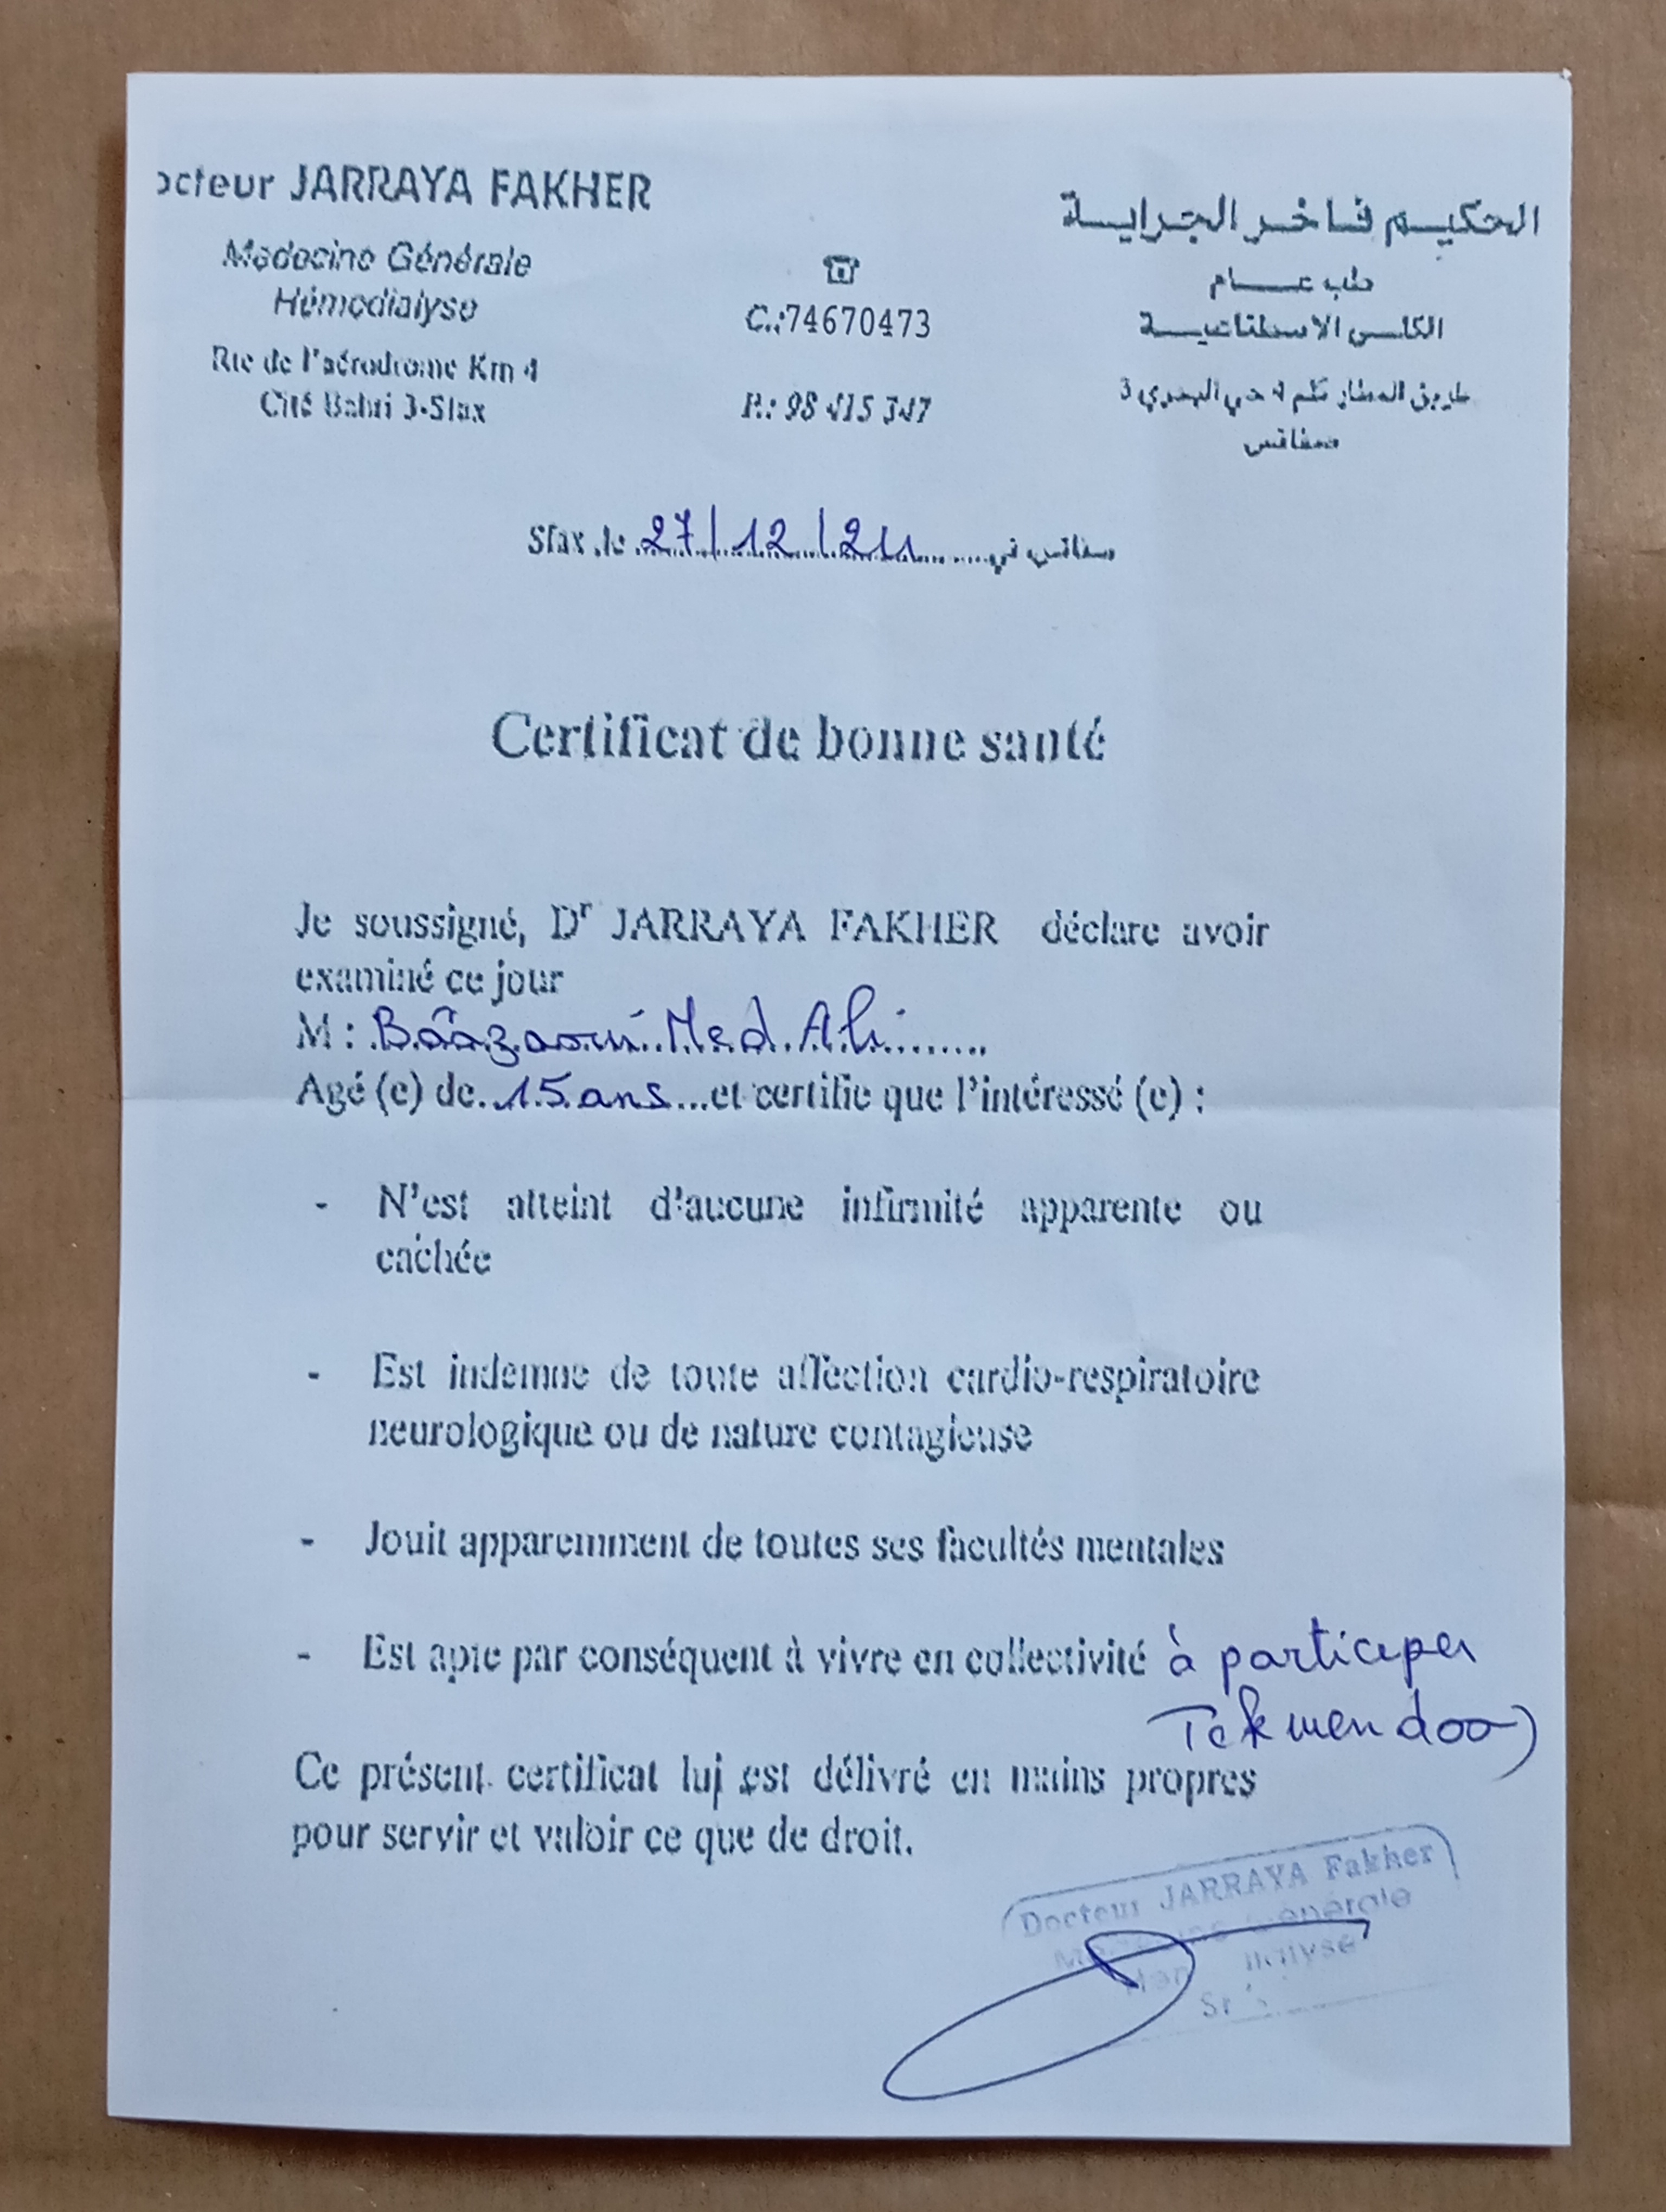 octeur JARRAYA FAKHER
Médecine Générale
Hémodialyse
Rte de l'aérodrome Km 4
Cité Bahri 3-Sfax
C.:74670473
P.: 98 415 347
الحكيم فاخر الجراية
طب عام
الكلى الاصطناعية
طريق المطار كلم 4 حي البحري 3
صفاقس
Sfax ,le 27/12/21 صفاقس في
Certificat de bonne santé
Je soussigné, Dr JARRAYA FAKHER déclare avoir
examiné ce jour
M : Bâazaoui Med Ali
Agé (e) de 15 ans et certifie que l'intéressé (e) :
- N'est atteint d'aucune infirmité apparente ou
cachée
- Est indemne de toute affection cardio-respiratoire
neurologique ou de nature contagieuse
- Jouit apparemment de toutes ses facultés mentales
- Est apte par conséquent à vivre en collectivité à participer
Tekwendoo)
Ce présent certificat lui est délivré en mains propres
pour servir et valoir ce que de droit.
Docteur JARRAYA Fakher
Générale